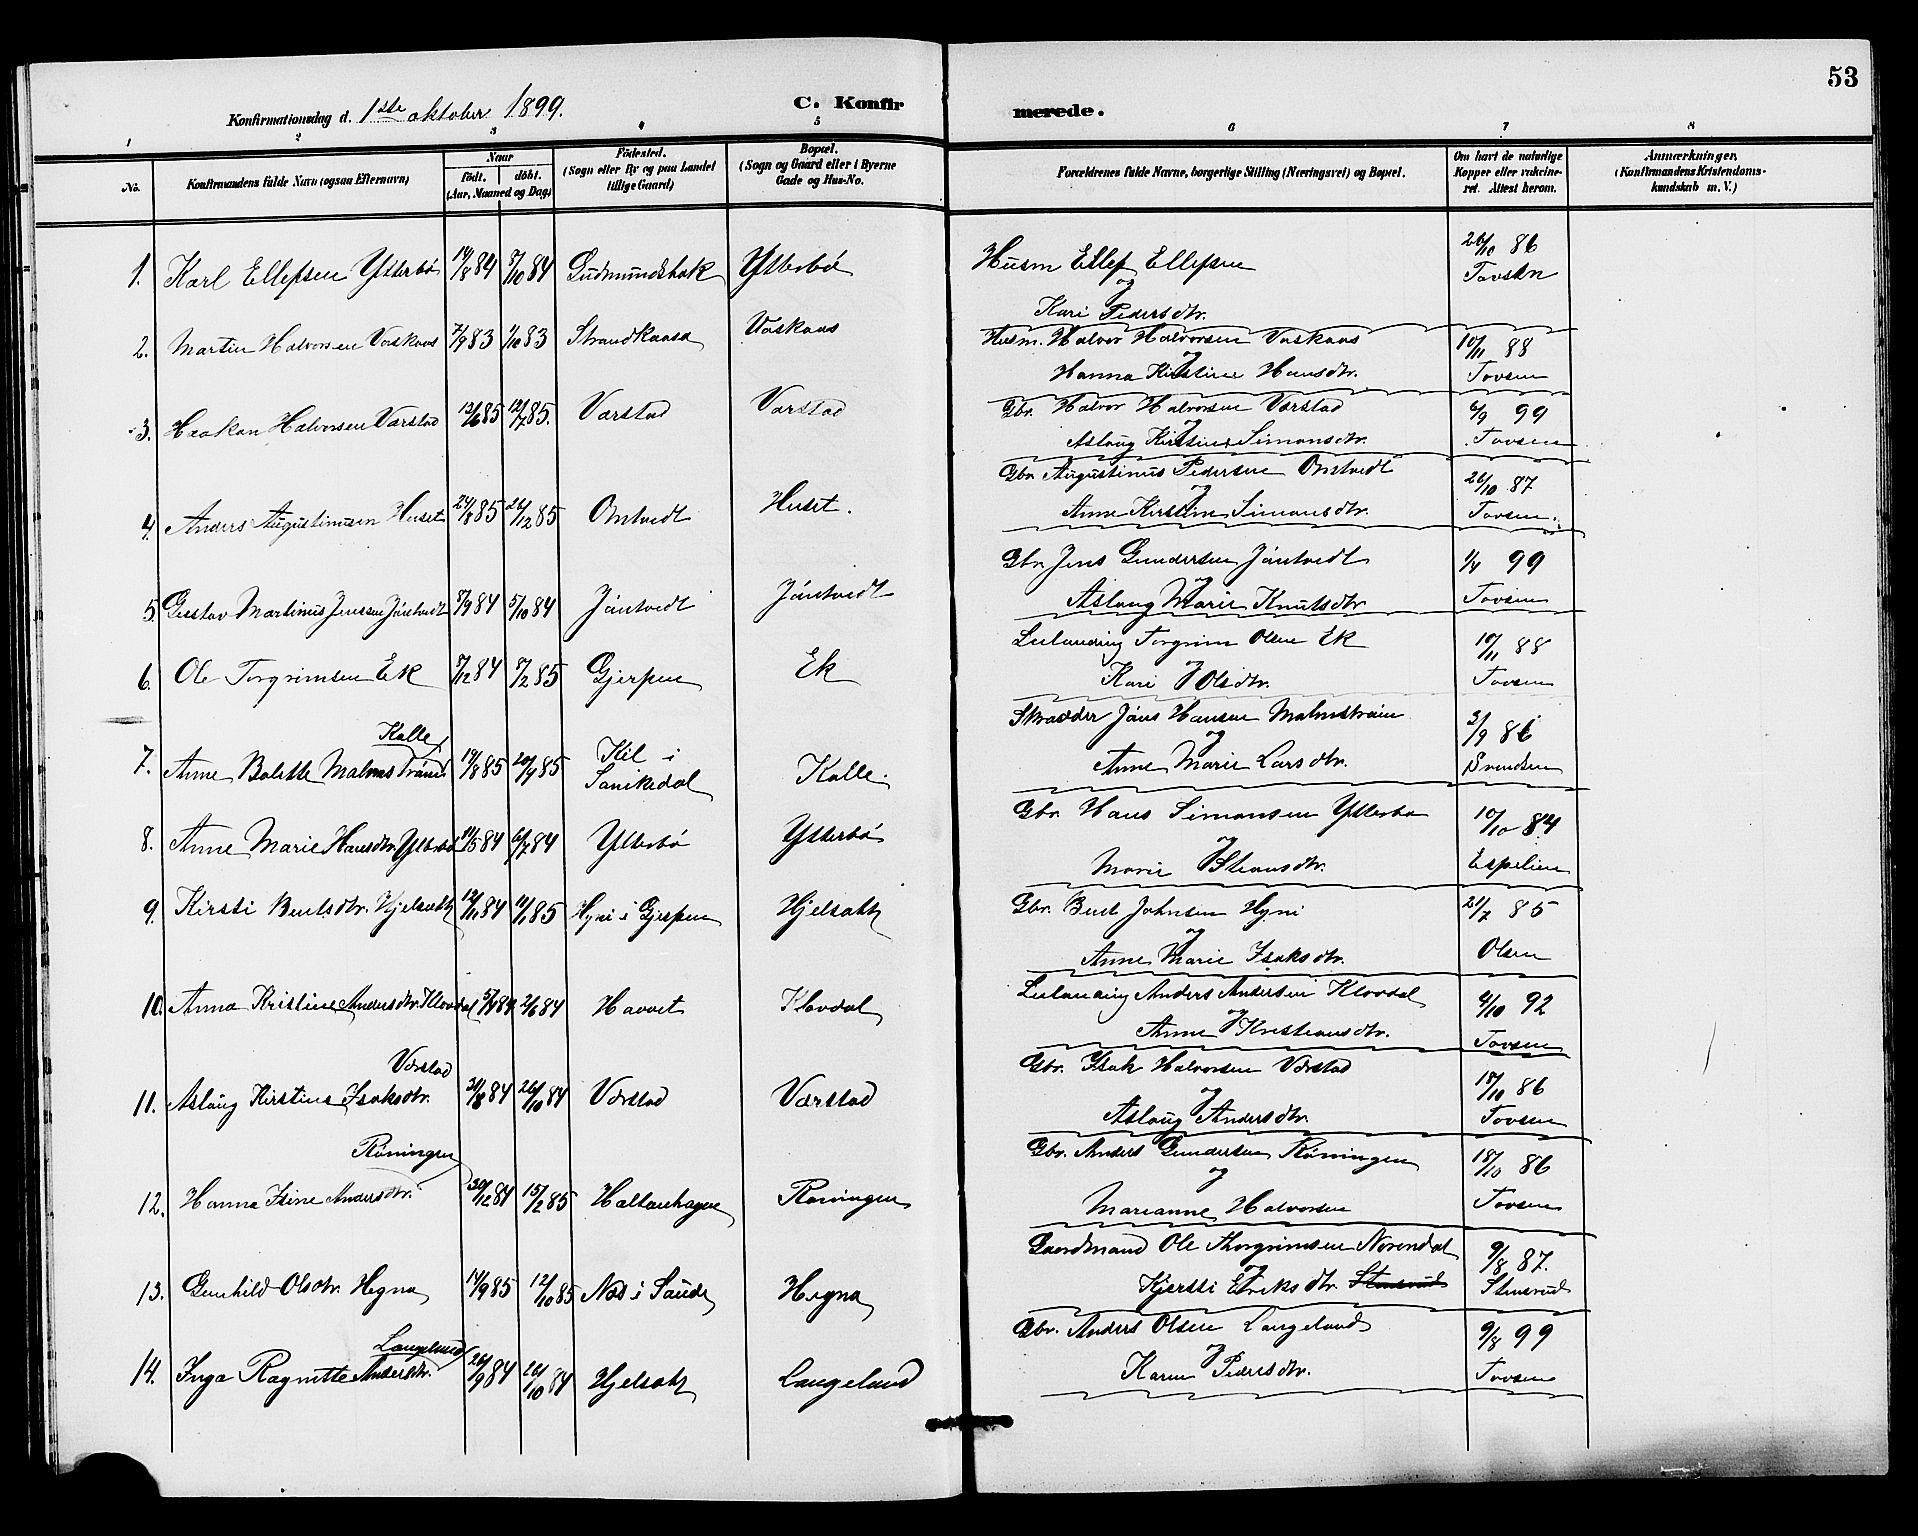 53
Konfirmationsdag d. 1ste oktober 1899.
C. Konfirmerede.
1 2 3 4 5 6 7 8
No.
Konfirmandens fulde Navn (ogsaa Efternavn)
Naar
født. døbt.
(Aar, Maaned og Dag)
Fødested.
(Sogn eller By og paa Landet
tillige Gaard)
Bopæl.
(Sogn og Gaard eller i Byerne
Gade og Hus-No.
Forældrenes fulde Navne, borgerlige Stilling (Næringsvei) og Bopæl.
Om havt de naturlige
Kopper eller vakcine-
ret. Attest herom.
Anmærkninger,
(Konfirmandens Kristendoms-
kundskab m. V.)
1. Karl Ellefsen Ytterbö 14/8 84 5/10 84 Gudmundsbak Ytterbö Husm Ellef Ellefsen 26/10 86
og Tovsen
Kari Pedersdtr.
2. Martin Halvorsen Vaskaas 7/9 83 1/10 83 Strandkaasa Vaskaas Husm. Halvor Halvorsen Vaskaas 10/11 88
og
Hanna Kirstine Hansdtr. Tovsen
3. Haakon Halvorsen Varstad 13/6 85 12/7 85. Varstad Varstad Gbr. Halvor Halvorsen Varstad 6/9 99
og
Aslaug Kirstine Simonsdtr. Tovsen
4. Anders Augustinusen Huset 24/8 85 26/12 85 Omtvedt Huset. Gbr Augustinus Pedersen Omtvedt 26/10 87
og
Anne Kirstine Simonsdtr. Tovsen.
5. Gustav Martinus Jensen Jöntvedt 8/9 84 5/10 84 Jöntvedt Jöntvedt Gbr. Jens Gundersen Jöntvedt 1/4 99
og
Aslaug Marie Knutsdtr Tovsen
6. Ole Torgrimsen Ek 8/12 84 8/2 85 Gjerpen Ek Leilænding Torgrim Olsen Ek 10/11 88
og
Kari Olsdtr. Tovsen
Kalle
7. Anne Bolette Malmström 19/8 85 20/9 85 Kil i Sanikedal Kalle. Skrædder Jöns Hansen Malmström 3/9 86
og
Anne Marie Larsdtr. Svendsen
8. Anne Marie Hansdtr. Ytterbö 11/5 84 6/7 84 Ytterbö Ytterbö Gbr. Hans Simonsen Ytterbö 10/10 84
og
Marie Steansdtr. Espelien
9. Kirsti Bentsdtr. Hjelsatt 12/11 84 11/1 85 Hyni i Gjerpen Hjelsatt Gbr. Bent Johnsen Hyni 21/7 85
og
Anne Marie Isaksdtr. Olsen
10. Anna Kristine Andersdtr. Klovdal 5/4 84 2/6 84 Havvet Klovdal Leilænding Anders Andersen Klovdal 4/10 92
og
Anne Kristiansdtr. Tovsen
Varstad
11. Aslaug Kirstine Isaksdtr. 31/8 84 26/10 84 Varstad Varstad Gbr. Isak Halvorsen Varstad 18/10 86
og
Aslaug Andersdtr. Tovsen
Röningen
12. Hanna Isine Andersdtr. 30/12 84 15/2 85 Haltanhagen Röningen Gbr. Anders Gundersen Röningen 18/10 86
og
Marianne Halvorsen Tovsen
13. Gunhild Olsdtr. Hegna 14/9 85 12/10 85 Næs i Saude Hegna Gaardmand Ole Thorgrimsen Norendal 9/8 87.
og
Kjersti Eriksdtr. Stensrud Stensrud
Langeland
14. Inga Ragnitte Andersdtr. 20/9 84 26/10 84 Hjelsatt Langeland Gbr. Anders Olsen Langeland 9/8 99
og
Karen Pedersdtr. Tovsen